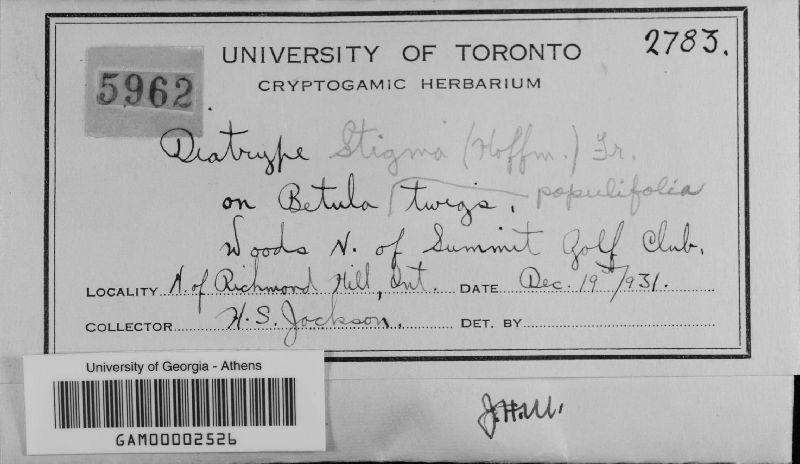 UNIVERSITY OF TORONTO
2783.
CRYPTOGAMIC HERBARIUM
5962
Diatrype Stigma (Hoffm.) Fr.
on Betula twigs, populifolia
Woods N. of Summit Golf Club.
LOCALITY N. of Richmond Hill, Ont. DATE Dec. 19 1931.
COLLECTOR H. S. Jackson. DET. BY
University of Georgia - Athens
GAM00002526